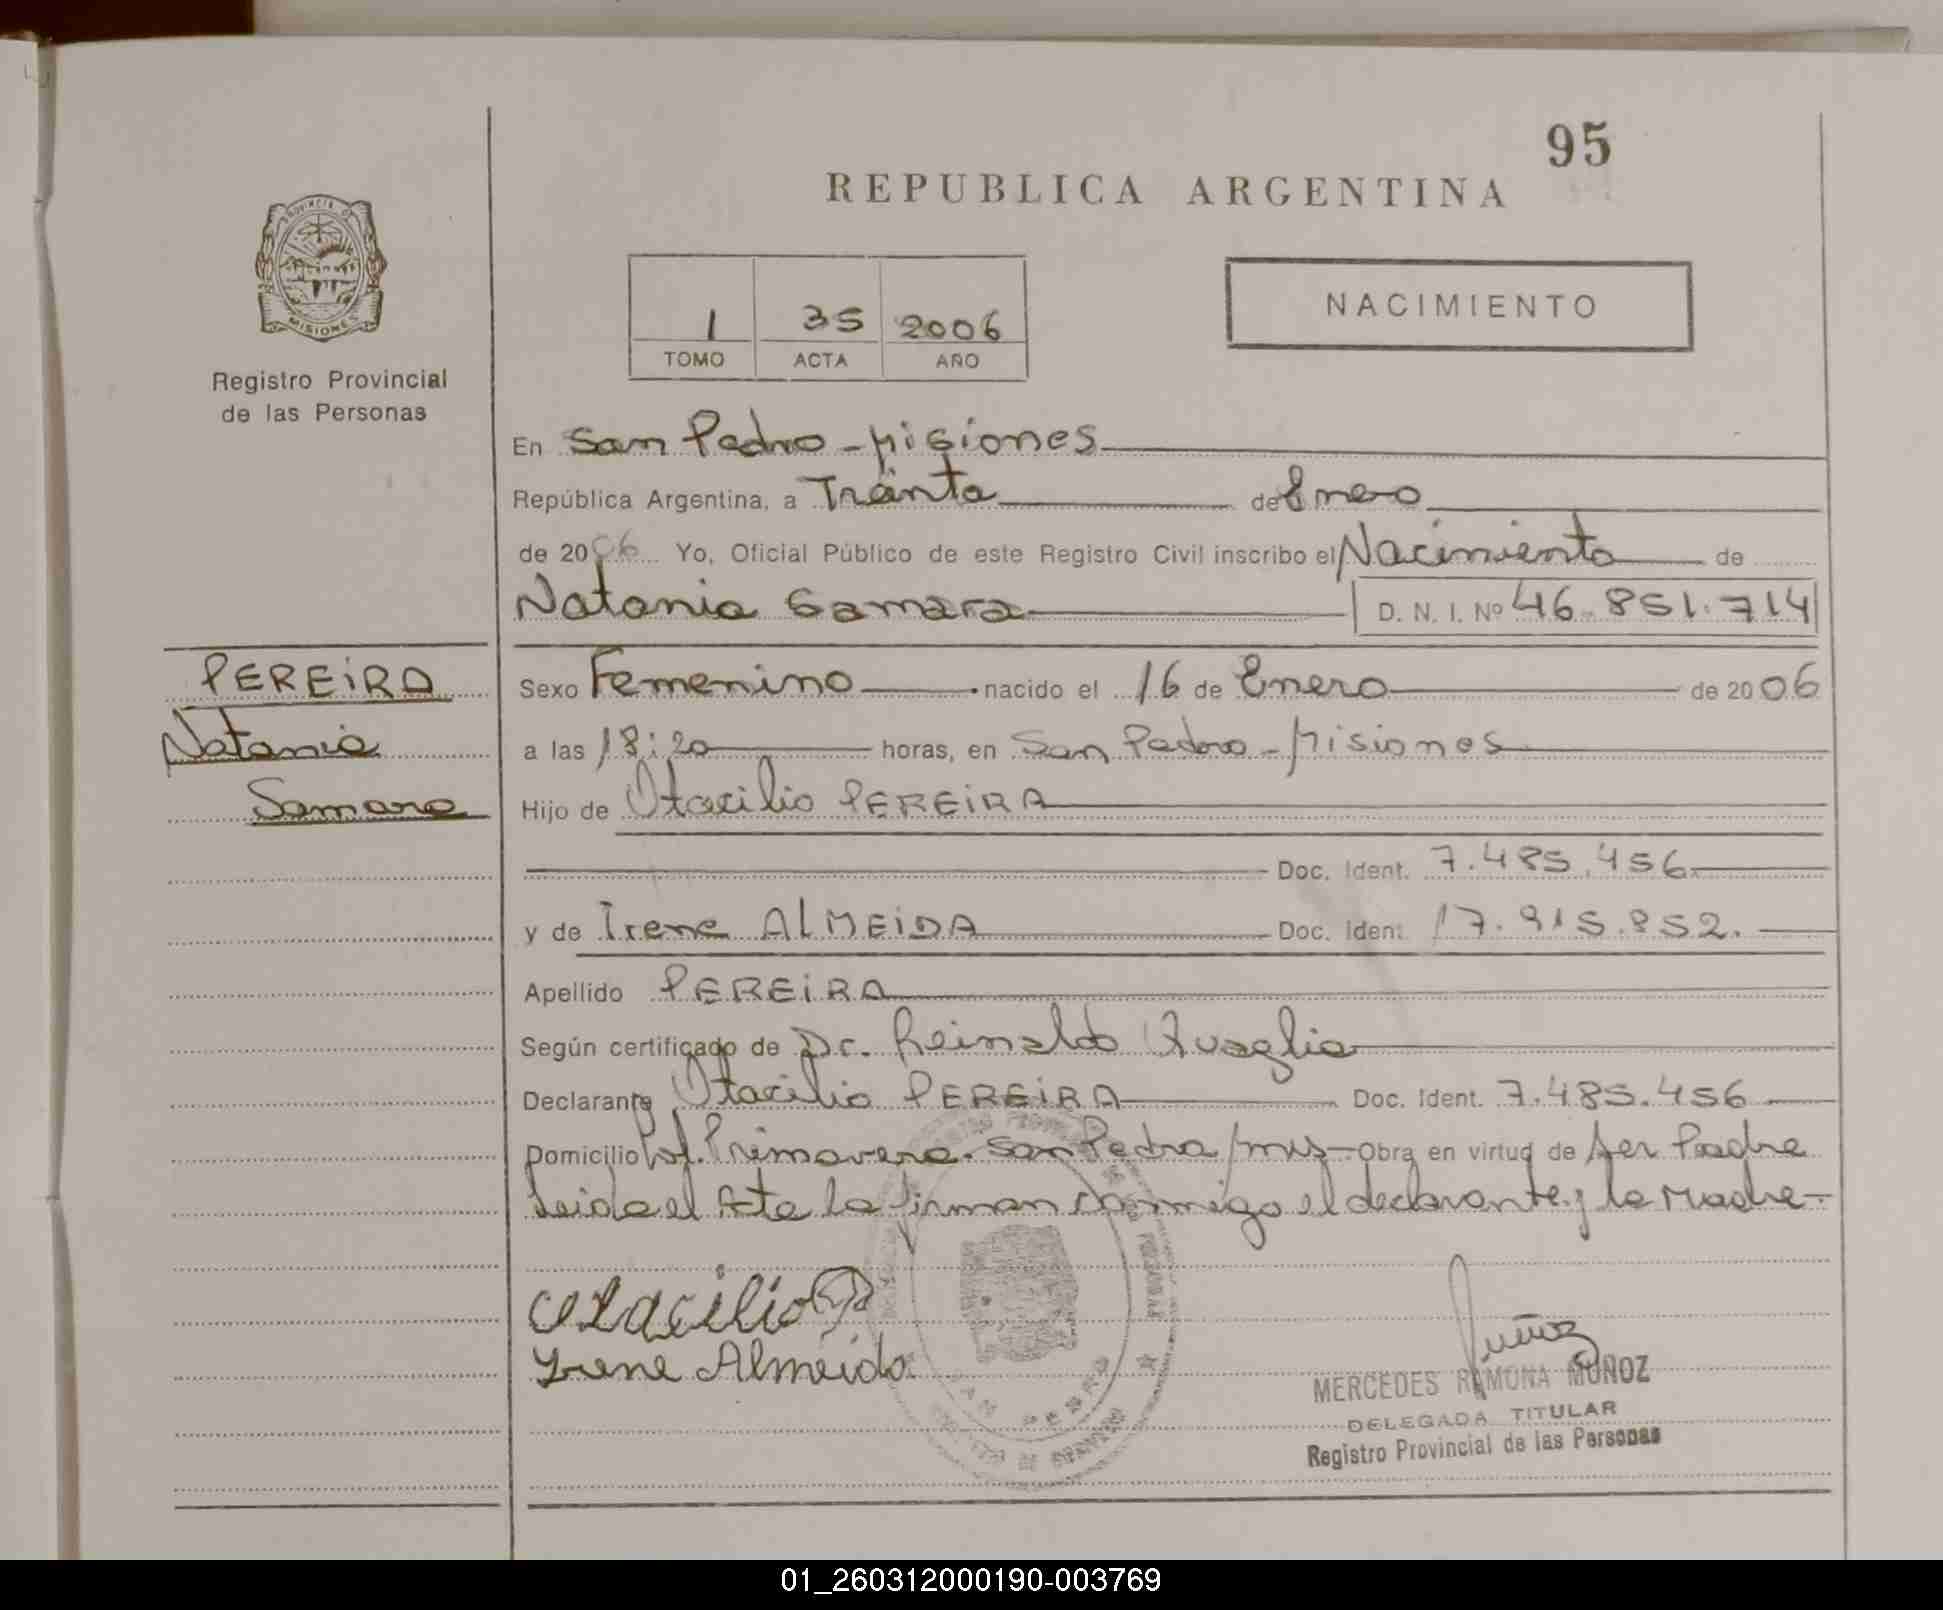 95
REPUBLICA ARGENTINA
PROVINCIA DE
MISIONES
Registro Provincial
de las Personas
1 35 2006
TOMO ACTA AÑO
NACIMIENTO
En San Pedro - Misiones
República Argentina, a Treinta de Enero
de 2006 Yo, Oficial Público de este Registro Civil inscribo el Nacimiento de
Natania Samara D. N. I. Nº 46.851.714
PEREIRA
Natania
Samara
Sexo Femenino nacido el 16 de Enero de 2006
a las 18:20 horas, en San Pedro - Misiones
Hijo de Otacilio PEREIRA
Doc. Ident. 7.485.456
y de Irene ALMEIDA Doc. Ident. 17.915.852.
Apellido PEREIRA
Según certificado de Dr. Reinaldo Quaglia
Declarante Otacilio PEREIRA Doc. Ident. 7.485.456
Domicilio Primavera - San Pedro / Mns - Obra en virtud de ser Padre
Leida el Acta la firman conmigo el declarante y la Madre -
Otacilio
Irene Almeida
SAN PEDRO
Muñoz
MERCEDES RAMONA MUÑOZ
DELEGADA TITULAR
Registro Provincial de las Personas
01_260312000190-003769